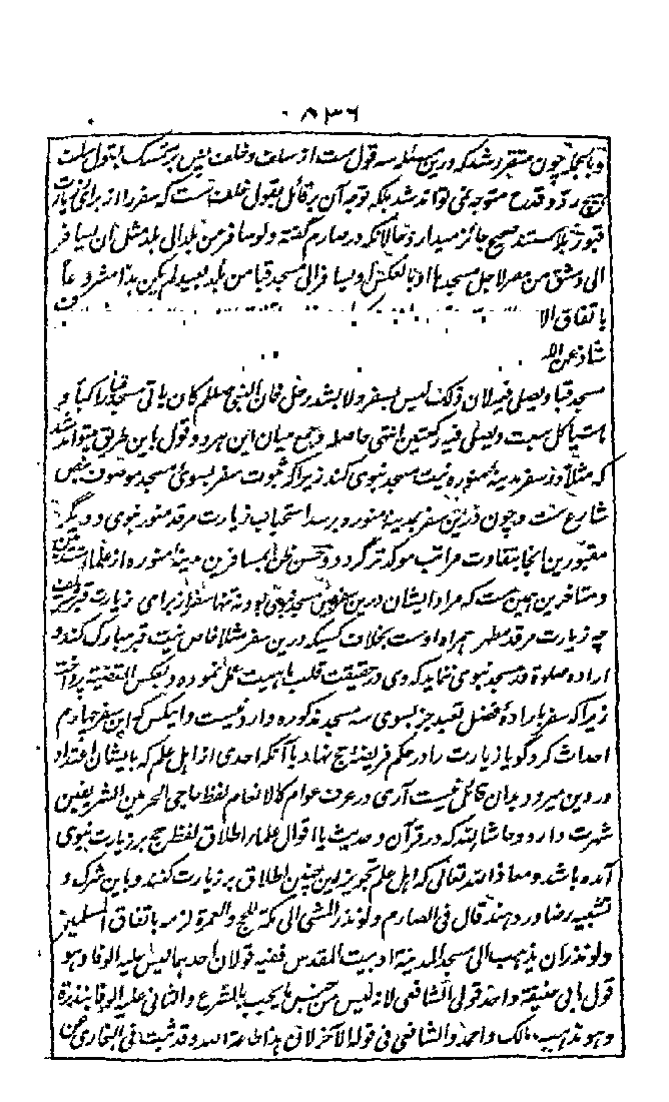 ۸۳۶
و بالجملہ چون متقرر شد کہ درین مسئلہ سہ قول ست از سلف و خلف پس بر متمسک بقول سلف
ہیچ رد و قدح متوجہ نمی تواند شد بلکہ توجہ آن بر قائل بقول خلف ست کہ سفر را از برای زیارت
قبور بلا مستند صحیح جائز میدارد و حالانکہ در صارم گفتہ ولو سافر من بلد الی بلد مثل ان یسافر
الی دمشق من مصر لاجل مسجدہا او بالعکس او یسافر الی مسجد قبا من بلد بعید لم یکن ہذا مشروعا
باتفاق الا
شاذ عن اللہ
مسجد قبا و یصلی فیہ لان ذلک لیس بسفر ولا بشد رحل فان النبی صلعم کان یاتی مسجد قبا راکبا و
ماشیا کل سبت و یصلی فیہ رکعتین انتہی حاصلہ و جمع میان این ہر دو قول باین طریق میتواند شد
کہ مثلا در سفر مدینہ منورہ نیت مسجد نبوی کند زیرا کہ ثبوت سفر بسوی مسجد موصوف بنص
شارع ست و چون درین سفر بمدینہ منورہ برسد استحباب زیارت مرقد منور نبوی و دیگر
مقبورین آنجا بتفاوت مراتب موکد تر گردد و حسن ظن بمسافرین مدینہ منورہ از علماء متقدمین
و متاخرین ہمین ست کہ مراد ایشان درین سفر نیت مسجد نبوی بود نہ تنہا سفر از برای زیارت قبر شریف
چہ زیارت مرقد مطہر ہمراہ اوست بخلاف کسیکہ درین سفر مثلا خاص نیت قبر مبارک کند و
ارادہ صلوۃ در مسجد نبوی ننماید کہ وی در حقیقت قلب ماہیت عمل نمودہ و بعکس القضیہ پرداخت
زیرا کہ سفر بارادۂ فضل تعبد جز بسوی سہ مسجد مذکورہ وارد نیست و اینکس کہ این سفر چہارم
احداث کرد گویا زیارت را در حکم فریضۂ حج نہاد با آنکہ احدی از اہل علم کہ بایشان اعتداد
در دین میرود بدان قائل نیست آری در عرف عوام کالانعام لفظ حاجی الحرمین الشریفین
شہرت دارد و حاشا للہ کہ در قرآن و حدیث یا اقوال علماء اطلاق لفظ حج بر زیارت نبوی
آمدہ باشد و معاذ اللہ تعالی کہ اہل علم تجویز این چنین اطلاق بر زیارت کنند و باین شرک و
تشبیہ رضا در دہند قال فی الصارم ولو نذر المشی الی مکۃ للحج والعمرۃ لزمہ باتفاق المسلمین
ولو نذر ان یذہب الی مسجد المدینۃ او بیت المقدس ففیہ قولان احدہما لیس علیہ الوفا وہو
قول ابی حنیفۃ واحد قولی الشافعی لانہ لیس من جنس ما یجب بالشرع والثانی علیہ الوفا بنذرہ
وہو مذہب مالک واحمد والشافعی فی قولہ الآخر لان ہذا طاعۃ للہ وقد ثبت فی البخاری عن